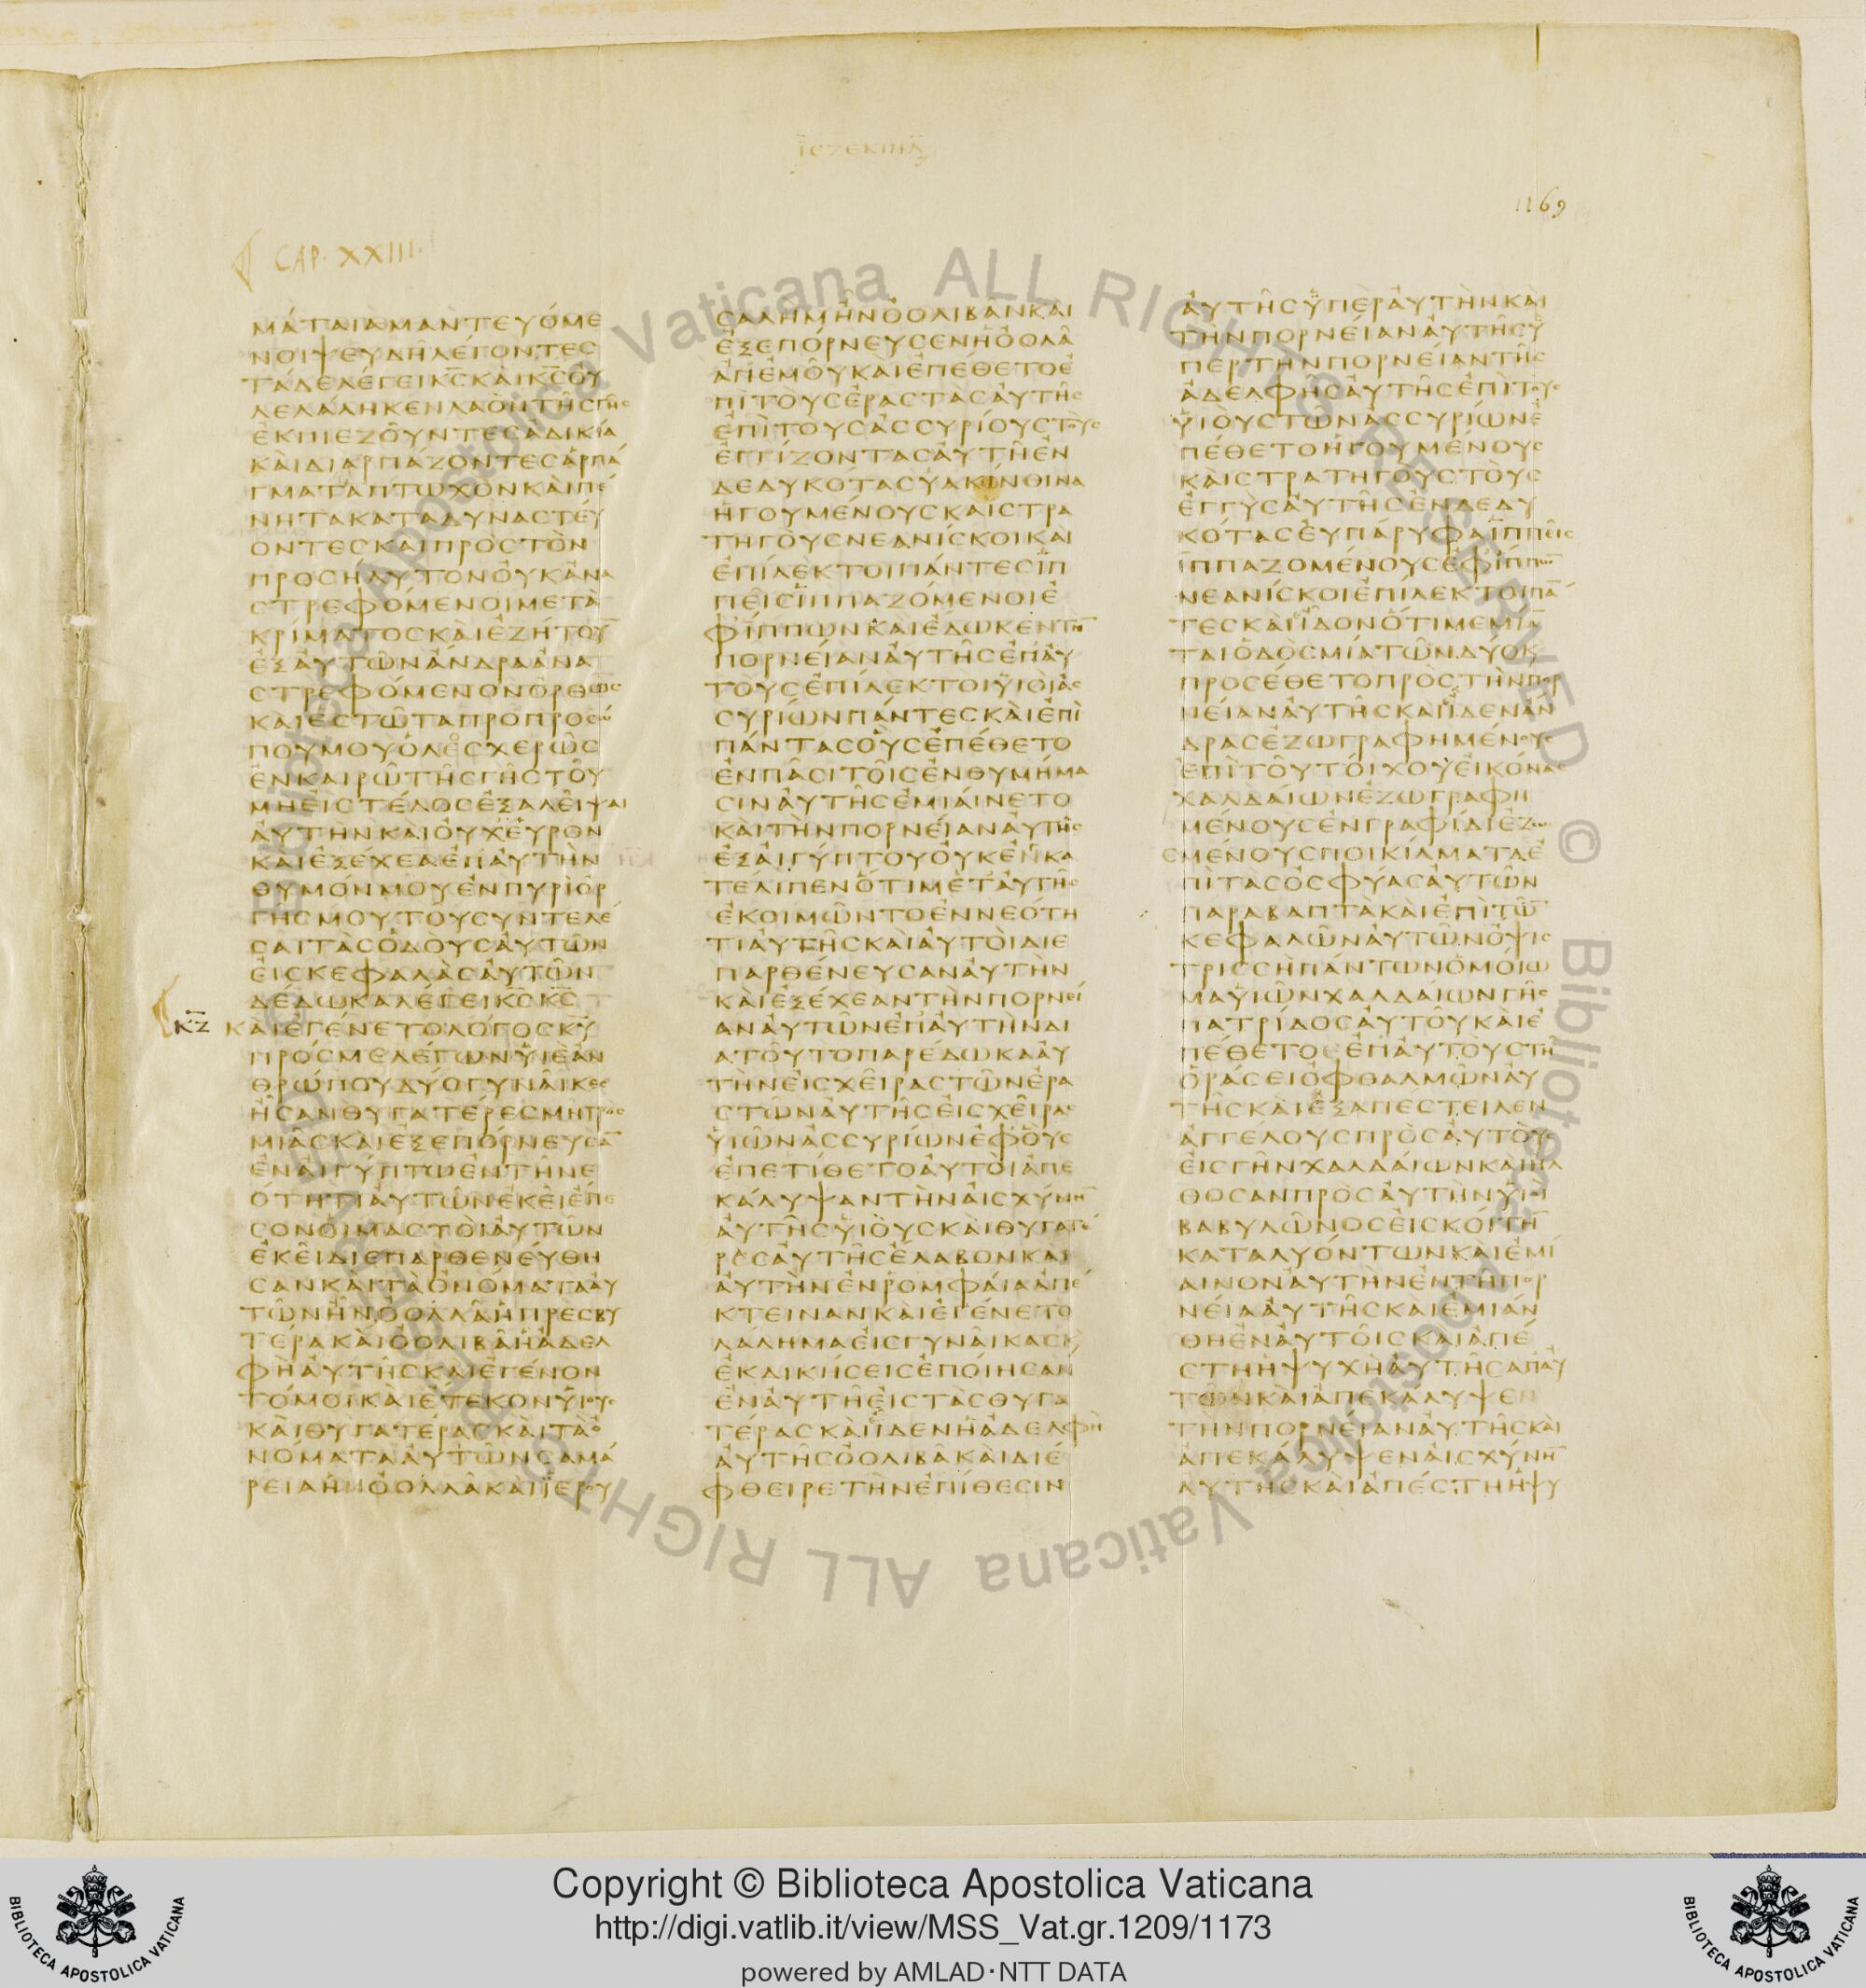 ἰεζεκιηλ
1169
CAP. XXIII.
ΜΑΤΑΙΑΜΑΝΤΕΥΟΜΕ
ΝΟΙΨΕΥΔΗΛΕΓΟΝΤΕΣ
ΤΑΔΕΛΕΓΕΙΚΣΚΑΙΚΣΟΥ
ΛΕΛΑΛΗΚΕΝΛΑΟΝΤΗΣΓΗΣ
ΕΚΠΙΕΖΟΥΝΤΕΣΑΔΙΚΙΑ
ΚΑΙΔΙΑΡΠΑΖΟΝΤΕΣΑΡΠΑ
ΓΜΑΤΑΠΤΩΧΟΝΚΑΙΠΕ
ΝΗΤΑΚΑΤΑΔΥΝΑΣΤΕΥ
ΟΝΤΕΣΚΑΙΠΡΟΣΤΟΝ
ΠΡΟΣΗΛΥΤΟΝΟΥΚΑΝΑ
ΣΤΡΕΦΟΜΕΝΟΙΜΕΤΑ
ΚΡΙΜΑΤΟΣΚΑΙΕΖΗΤΟΥ̅
ΕΞΑΥΤΩΝΑΝΔΡΑΑΝΑ
ΣΤΡΕΦΟΜΕΝΟΝΟΡΘΩΣ
ΚΑΙΕΣΤΩΤΑΠΡΟΠΡΟΣΩ
ΠΟΥΜΟΥΟΛΟΣΧΕΡΩΣ
ΕΝΚΑΙΡΩΤΗΣΓΗΣΤΟΥ
ΜΗΕΙΣΤΕΛΟΣΕΞΑΛΕΙΨΑΙ
ΑΥΤΗΝΚΑΙΟΥΧΕΥΡΟΝ
ΚΑΙΕΞΕΧΕΑΕΠΑΥΤΗΝ
ΘΥΜΟΝΜΟΥΕΝΠΥΡΙΟΡ
ΓΗΣΜΟΥΤΟΥΣΥΝΤΕΛΕ
ΣΑΙΤΑΣΟΔΟΥΣΑΥΤΩΝ
ΕΙΣΚΕΦΑΛΑΣΑΥΤΩΝ
ΔΕΔΩΚΑΛΕΓΕΙΚΣΚΣ
ΚΖ ΚΑΙΕΓΕΝΕΤΟΛΟΓΟΣΚΥ
ΠΡΟΣΜΕΛΕΓΩΝΥΙΕΑΝ
ΘΡΩΠΟΥΔΥΟΓΥΝΑΙΚΕΣ
ΗΣΑΝΘΥΓΑΤΕΡΕΣΜΗΤΡΟΣ
ΜΙΑΣΚΑΙΕΞΕΠΟΡΝΕΥΣΑ̅
ΕΝΑΙΓΥΠΤΩΕΝΤΗΝΕ
ΟΤΗΤΙΑΥΤΩΝΕΚΕΙΕΠΕ
ΣΟΝΟΙΜΑΣΤΟΙΑΥΤΩΝ
ΕΚΕΙΔΙΕΠΑΡΘΕΝΕΥΘΗ
ΣΑΝΚΑΙΤΑΟΝΟΜΑΤΑΑΥ
ΤΩΝΗΝΟΟΛΛΑΗΠΡΕΣΒΥ
ΤΕΡΑΚΑΙΟΟΛΙΒΑΗΑΔΕΛ
ΦΗΑΥΤΗΣΚΑΙΕΓΕΝΟΝ
ΤΟΜΟΙΚΑΙΕΤΕΚΟΝΥΙΟΥΣ
ΚΑΙΘΥΓΑΤΕΡΑΣΚΑΙΤΑΟ
ΝΟΜΑΤΑΑΥΤΩΝΣΑΜΑ
ΡΕΙΑΗΝΟΟΛΛΑΚΑΙΙΕΡΟΥ
ΣΑΛΗΜΗΝΟΟΛΙΒΑΝΚΑΙ
ΕΞΕΠΟΡΝΕΥΣΕΝΗΟΟΛΑ
ΑΠΕΜΟΥΚΑΙΕΠΕΘΕΤΟΕ
ΠΙΤΟΥΣΕΡΑΣΤΑΣΑΥΤΗΣ
ΕΠΙΤΟΥΣΑΣΣΥΡΙΟΥΣΤΟΥΣ
ΕΓΓΙΖΟΝΤΑΣΑΥΤΗΕΝ
ΔΕΔΥΚΟΤΑΣΥΑΚΙΝΘΙΝΑ
ΗΓΟΥΜΕΝΟΥΣΚΑΙΣΤΡΑ
ΤΗΓΟΥΣΝΕΑΝΙΣΚΟΙΚΑΙ
ΕΠΙΛΕΚΤΟΙΠΑΝΤΕΣΙΠ
ΠΕΙΣΙΠΠΑΖΟΜΕΝΟΙΕ
ΦΙΠΠΩΝΚΑΙΕΔΩΚΕΝΤΗ̅
ΠΟΡΝΕΙΑΝΑΥΤΗΣΕΠΑΥ
ΤΟΥΣΕΠΙΛΕΚΤΟΙΥΙΟΙΑΣ
ΣΥΡΙΩΝΠΑΝΤΕΣΚΑΙΕΠΙ
ΠΑΝΤΑΣΟΥΣΕΠΕΘΕΤΟ
ΕΝΠΑΣΙΤΟΙΣΕΝΘΥΜΗΜΑ
ΣΙΝΑΥΤΗΣΕΜΙΑΙΝΕΤΟ
ΚΑΙΤΗΝΠΟΡΝΕΙΑΝΑΥΤΗΣ
ΕΞΑΙΓΥΠΤΟΥΟΥΚΕΝΚΑ
ΤΕΛΙΠΕΝΟΤΙΜΕΤΑΥΤΗΣ
ΕΚΟΙΜΩΝΤΟΕΝΝΕΟΤΗ
ΤΙΑΥΤΗΣΚΑΙΑΥΤΟΙΔΙΕ
ΠΑΡΘΕΝΕΥΣΑΝΑΥΤΗΝ
ΚΑΙΕΞΕΧΕΑΝΤΗΝΠΟΡΝΕΙ
ΑΝΑΥΤΩΝΕΠΑΥΤΗΝΔΙ
ΑΤΟΥΤΟΠΑΡΕΔΩΚΑΑΥ
ΤΗΝΕΙΣΧΕΙΡΑΣΤΩΝΕΡΑ
ΣΤΩΝΑΥΤΗΣΕΙΣΧΕΙΡΑΣ
ΥΙΩΝΑΣΣΥΡΙΩΝΕΦΟΥΣ
ΕΠΕΤΙΘΕΤΟΑΥΤΟΙΑΠΕ
ΚΑΛΥΨΑΝΤΗΝΑΙΣΧΥΝΗ̅
ΑΥΤΗΣΥΙΟΥΣΚΑΙΘΥΓΑΤΕ
ΡΕΣΑΥΤΗΣΕΛΑΒΟΝΚΑΙ
ΑΥΤΗΝΕΝΡΟΜΦΑΙΑΑΠΕ
ΚΤΕΙΝΑΝΚΑΙΕΓΕΝΕΤΟ
ΛΑΛΗΜΑΕΙΣΓΥΝΑΙΚΑΣΚ
ΕΚΔΙΚΗΣΕΙΣΕΠΟΙΗΣΑΝ
ΕΝΑΥΤΗΕΙΣΤΑΣΘΥΓΑ
ΤΕΡΑΣΚΑΙΙΔΕΝΗΑΔΕΛΦΗ
ΑΥΤΗΣΟΟΛΙΒΑΚΑΙΔΙΕ
ΦΘΕΙΡΕΤΗΝΕΠΙΘΕΣΙΝ
ΑΥΤΗΣΥΠΕΡΑΥΤΗΝΚΑΙ
ΤΗΝΠΟΡΝΕΙΑΝΑΥΤΗΣΥ
ΠΕΡΤΗΝΠΟΡΝΕΙΑΝΤΗΣ
ΑΔΕΛΦΗΣΑΥΤΗΣΕΠΙΤΟΥΣ
ΥΙΟΥΣΤΩΝΑΣΣΥΡΙΩΝΕ
ΠΕΘΕΤΟΗΓΟΥΜΕΝΟΥΣ
ΚΑΙΣΤΡΑΤΗΓΟΥΣΤΟΥΣ
ΕΓΓΥΣΑΥΤΗΣΕΝΔΕΔΥ
ΚΟΤΑΣΕΥΠΑΡΥΦΑΙΠΠΕΙΣ
ΙΠΠΑΖΟΜΕΝΟΥΣΕΦΙΠΠΩ̅
ΝΕΑΝΙΣΚΟΙΕΠΙΛΕΚΤΟΙΠΑ̅
ΤΕΣΚΑΙΙΔΟΝΟΤΙΜΕΜΙΑ̅
ΤΑΙΟΔΟΣΜΙΑΤΩΝΔΥΟΚ
ΠΡΟΣΕΘΕΤΟΠΡΟΣΤΗΝΠΟΡ
ΝΕΙΑΝΑΥΤΗΣΚΑΙΙΔΕΝΑΝ
ΔΡΑΣΕΖΩΓΡΑΦΗΜΕΝΟΥΣ
ΕΠΙΤΟΥΤΟΙΧΟΥΕΙΚΟΝΑΣ
ΧΑΛΔΑΙΩΝΕΖΩΓΡΑΦΗ
ΜΕΝΟΥΣΕΝΓΡΑΦΙΔΙΕΖΩ
ΣΜΕΝΟΥΣΠΟΙΚΙΛΜΑΤΑΕ
ΠΙΤΑΣΟΣΦΥΑΣΑΥΤΩΝ
ΠΑΡΑΒΑΠΤΑΚΑΙΕΠΙΤΩ̅
ΚΕΦΑΛΩΝΑΥΤΩΝΟΨΙΣ
ΤΡΙΣΣΗΠΑΝΤΩΝΟΜΟΙΩ
ΜΑΥΙΩΝΧΑΛΔΑΙΩΝΓΗΣ
ΠΑΤΡΙΔΟΣΑΥΤΟΥΚΑΙΕ
ΠΕΘΕΤΟΕΠΑΥΤΟΥΣΤΗ
ΟΡΑΣΕΙΟΦΘΑΛΜΩΝΑΥ
ΤΗΣΚΑΙΕΞΑΠΕΣΤΕΙΛΕΝ
ΑΓΓΕΛΟΥΣΠΡΟΣΑΥΤΟΥΣ
ΕΙΣΓΗΝΧΑΛΔΑΙΩΝΚΑΙΗΛ
ΘΟΣΑΝΠΡΟΣΑΥΤΗΝΥΙΟΙ
ΒΑΒΥΛΩΝΟΣΕΙΣΚΟΙΤΗ̅
ΚΑΤΑΛΥΟΝΤΩΝΚΑΙΕΜΙ
ΑΙΝΟΝΑΥΤΗΝΕΝΤΗΠΟΡ
ΝΕΙΑΑΥΤΗΣΚΑΙΕΜΙΑΝ
ΘΗΕΝΑΥΤΟΙΣΚΑΙΑΠΕ
ΣΤΗΗΨΥΧΗΑΥΤΗΣΑΠΑΥ
ΤΩΝΚΑΙΑΠΕΚΑΛΥΨΕΝ
ΤΗΝΠΟΡΝΕΙΑΝΑΥΤΗΣΚΑΙ
ΑΠΕΚΑΛΥΨΕΝΑΙΣΧΥΝΗ̅
ΑΥΤΗΣΚΑΙΑΠΕΣΤΗΗΨΥ
ALL RIGHTS © Biblioteca Apostolica Vaticana
ALL RIGHTS © Biblioteca Apostolica Vaticana
Copyright © Biblioteca Apostolica Vaticana
http://digi.vatlib.it/view/MSS_Vat.gr.1209/1173
powered by AMLAD·NTT DATA
BIBLIOTECA APOSTOLICA VATICANA
BIBLIOTECA APOSTOLICA VATICANA